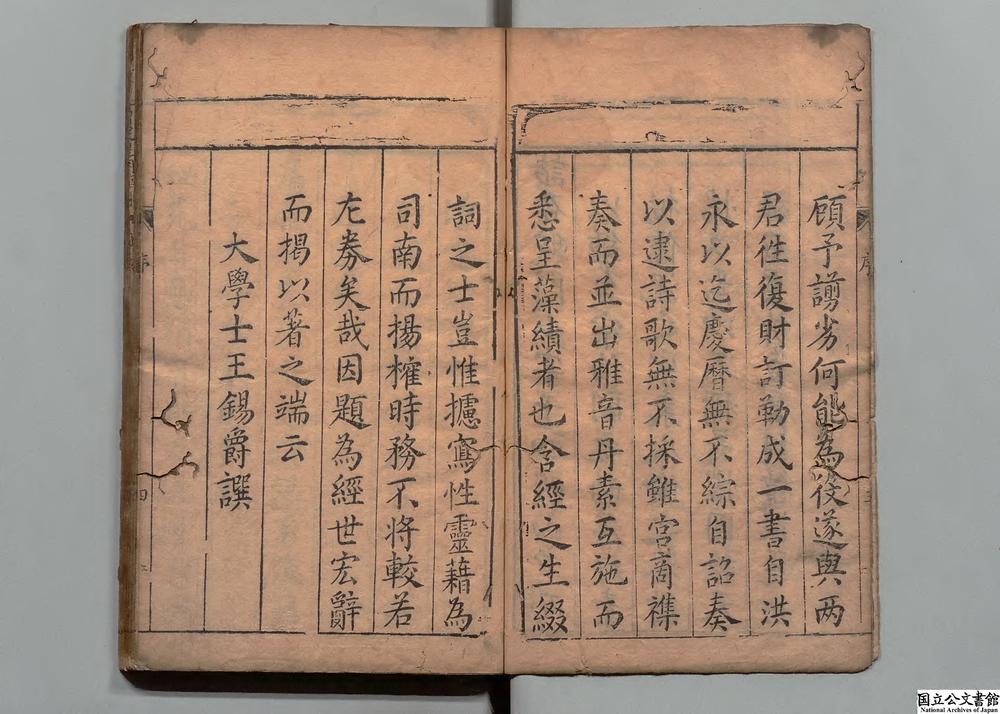 顧予謭劣何能為役遂與两
君徃復財訂勒成一書自洪
永以迄慶曆無不綜自詔奏
以逮詩歌無不採雖宮商襍
奏而並出雅音丹素互施而
悉呈藻繢者也含經之生綴
詞之士豈惟攄寫性靈藉為
司南而揚榷時務不將較若
左劵矣哉因題為經世宏辭
而揭以著之端云
大學士王錫爵譔
序
四
国立公文書館
National Archives of Japan